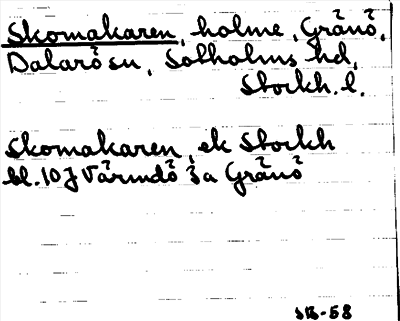 Skomakaren, holme, Gränö,
Dalarö sn, Sotholms hd,
Stockh. l.
Skomakaren, ek Stockh
bl. 10 J Värmdö 3a Gränö